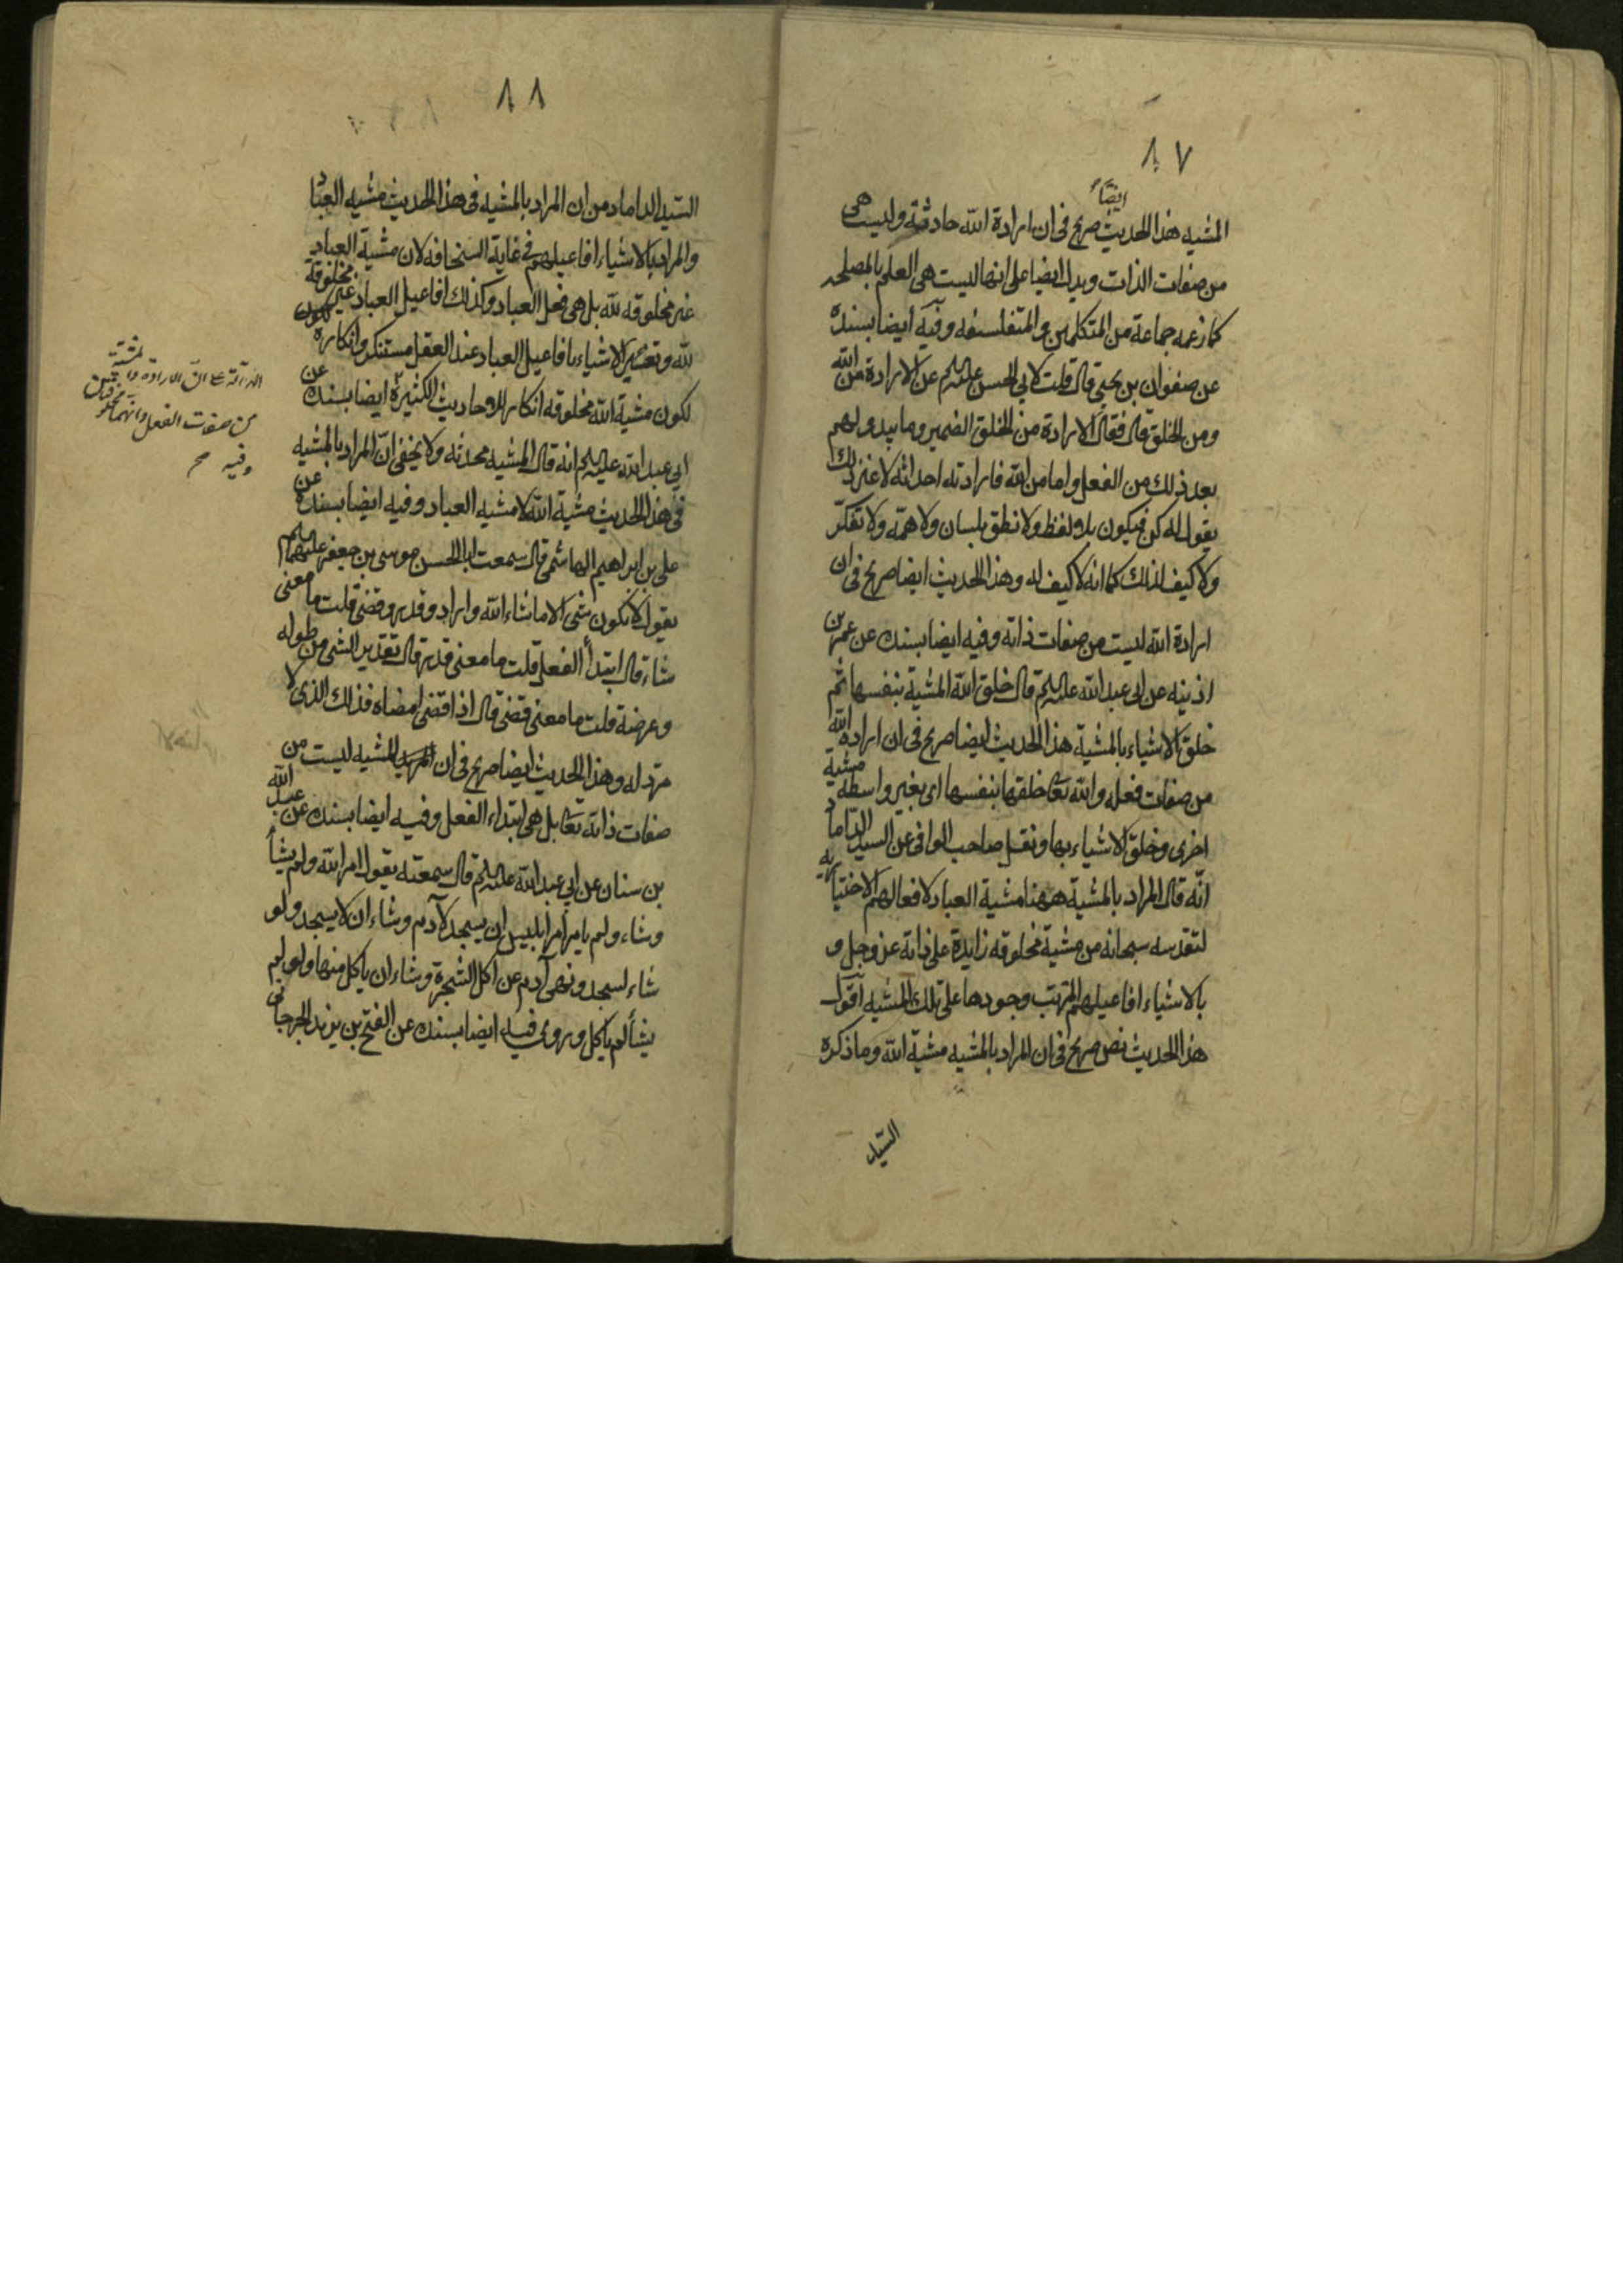 ٨٧
ايضاً
المشيه هذا الحديث صريح فى ان ارادة الله حادثة وليست هى
من صفات الذات ويدل ايضا على انها ليست هى العلم بالمصلحه
كما زعمه جماعة من المتكلمين والمتفلسفه وفيه ايضا بسنده
عن صفوان بن يحيى قال قلت لابي الحسن عليه السلم عن الارادة من الله
ومن الخلق قال فقال الارادة من الخلق الضمير وما يبدو لهم
بعد ذلك من الفعل واما من الله فارادته احداثه لا غير ذلك
يقول له كن فيكون بلا لفظ ولا نطق بلسان ولا همّه ولا تفكّر
ولا كيف لذلك كما انه لا كيف له وهذا الحديث ايضا صريح فى ان
ارادة الله ليست من صفات ذاته وفيه ايضا بسنده عن عمر بن
اذينه عن ابى عبد الله عليه السلم قال خلق الله المشية بنفسها ثم
خلق الاشياء بالمشية هذا الحديث ايضا صريح فى ان ارادة الله
من صفات فعله والله تعا خلقها بنفسها اى بغير واسطة مشية
اخرى وخلق الاشياء بها ونقل صاحب الوافى عن السيد الداماد
انّه قال المراد بالمشية ههنا مشية العباد لافعالهم الاختياريه
لتقدسه سبحانه من مشية مخلوقه زايدة على ذاته عز وجل و
بالاشياء افاعيلهم المترتب وجودها على تلك المشيه اقول
هذا الحديث نص صريح فى ان المراد بالمشيه مشية الله وما ذكره
السيد
٨٨
السيد الداماد من ان المراد بالمشيه فى هذا الحديث مشيه العباد
والمراد بالاشياء افاعيلهم فى غاية السخافه لان مشية العباد
غير مخلوقه لله بل هى فعل العباد وكذلك افاعيل العباد غير مخلوقة
لله وتفسير الاشياء بافاعيل العباد عند العقل مستنكر وانكاره
لكون مشية الله مخلوقه انكار للاحاديث الكثيرة ايضا بسنده عن
ابي عبد الله عليه السلم انه قال المشيه محدثه ولا يخفى انّ المراد بالمشيه
فى هذا الحديث مشية الله لا مشيه العباد وفيه ايضا بسنده عن
على بن ابراهيم الهاشمى قال سمعت ابا الحسن موسى بن جعفر عليهما السلم
يقول لا يكون شى الا ما شاء الله واراد وقدر وقضى قلت ما معنى
شاء قال ابتدأ الفعل قلت ما معنى قدر قال تقدير الشى من طوله
وعرضه قلت ما معنى قضى قال اذا قضى امضاه فذلك الذى لا
مرد له وهذا الحديث ايضا صريح فى ان المشيه ليست من
صفات ذاته تعا بل هى ابتداء الفعل وفيه ايضا بسنده عن عبد الله
بن سنان عن ابي عبد الله عليه السلم قال سمعته يقول امر الله ولم يشأ
وشاء ولم يامر امر ابليس ان يسجد لآدم وشاء ان لا يسجد ولو
شاء لسجد ونهى آدم عن اكل الشجرة وشاء ان ياكل منها ولو لم
يشأ لم ياكل وروى فيه ايضا بسنده عن الفتح بن يزيد الجرجانى
الدالة على ان الارادة والمشية
من صفات الفعل وانهما مخلوقتين
وفيه صح